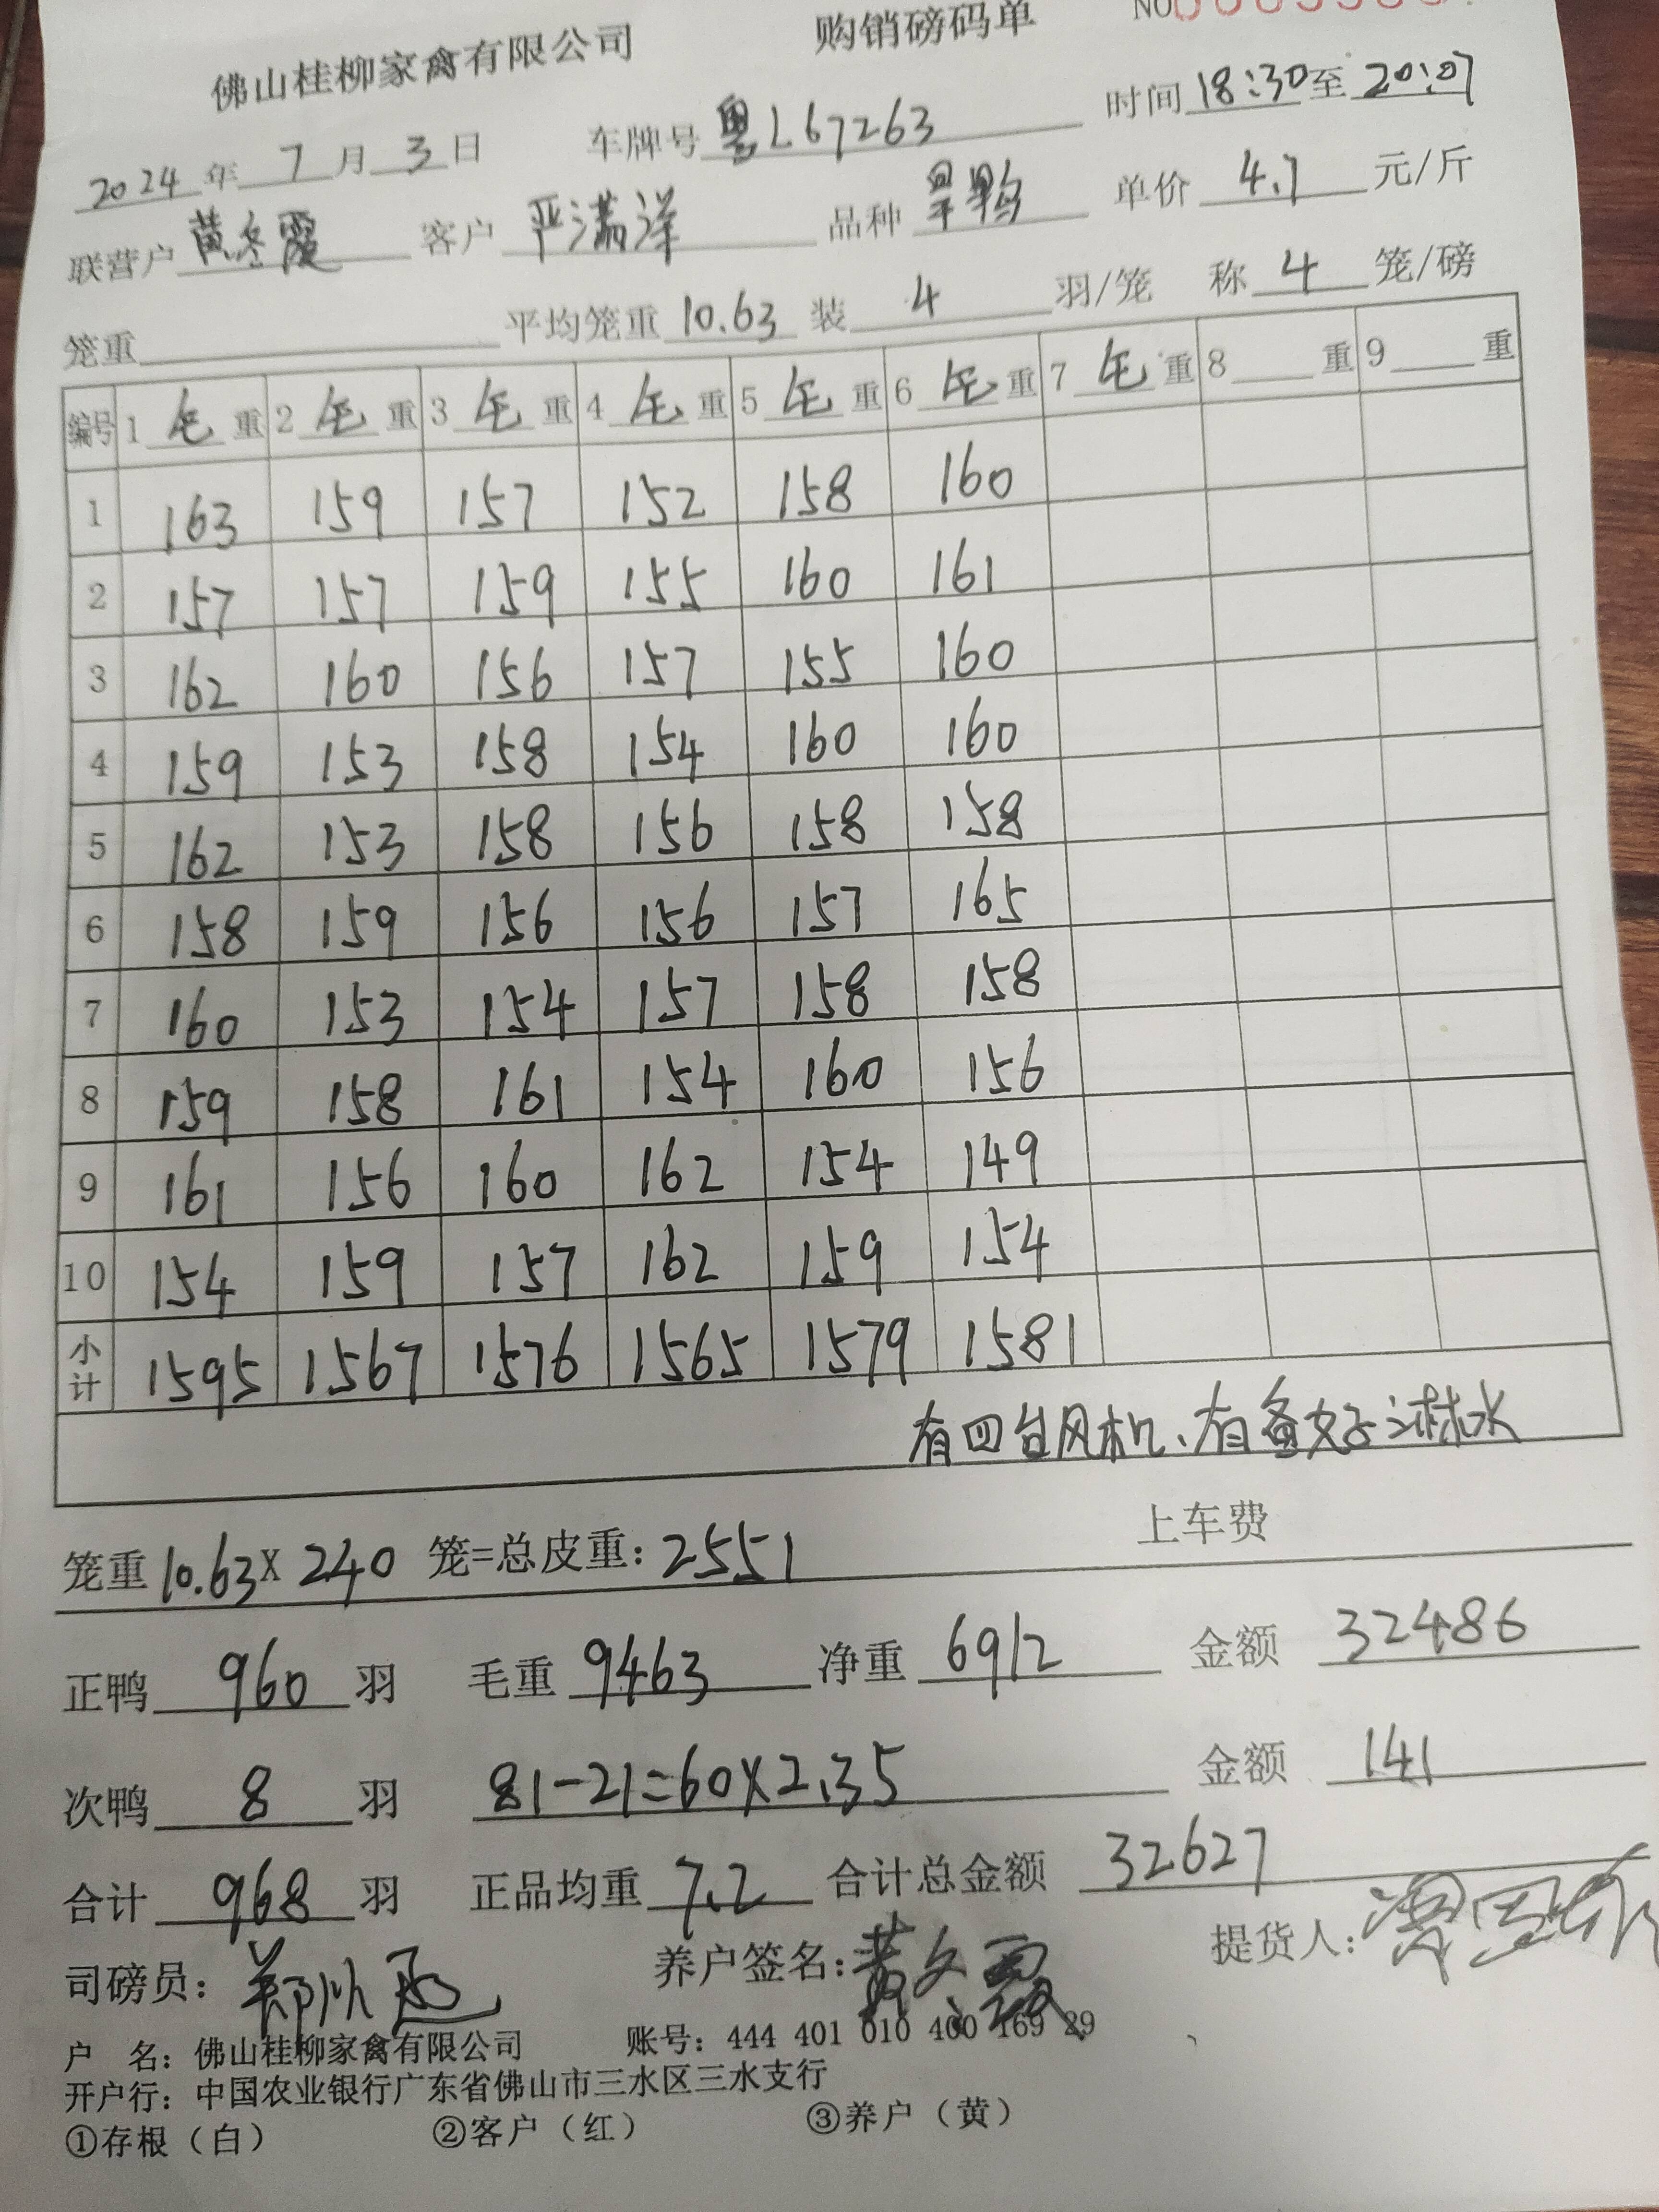 佛山桂柳家禽有限公司 购销磅码单 NO
2024年 7月 3日 车牌号 粤L67263 时间 18:30至 20:07
联营户 黄冬霞 客户 严满洋 品种 旱鸭 单价 4.7 元/斤
笼重 平均笼重 10.63 装 4 羽/笼 称 4 笼/磅
编号 1 毛 重 2 毛 重 3 毛 重 4 毛 重 5 毛 重 6 毛 重 7 毛 重 8 重 9 重
1 163 159 157 152 158 160
2 157 157 159 155 160 161
3 162 160 156 157 155 160
4 159 153 158 154 160 160
5 162 153 158 156 158 158
6 158 159 156 156 157 165
7 160 153 154 157 158 158
8 159 158 161 154 160 156
9 161 156 160 162 154 149
10 154 159 157 162 159 154
小计 1595 1567 1576 1565 1579 1581
有四台风机、有备好淋水
笼重 10.63 X 240 笼=总皮重: 2551 上车费
正鸭 960 羽 毛重 9463 净重 6912 金额 32486
次鸭 8 羽 81-21=60X2.35 金额 141
合计 968 羽 正品均重 7.2 合计总金额 32627
司磅员: 养户签名: 提货人:
户 名: 佛山桂柳家禽有限公司 账号: 444 401 010 400 169 29
开户行: 中国农业银行广东省佛山市三水区三水支行
①存根（白） ②客户（红） ③养户（黄）